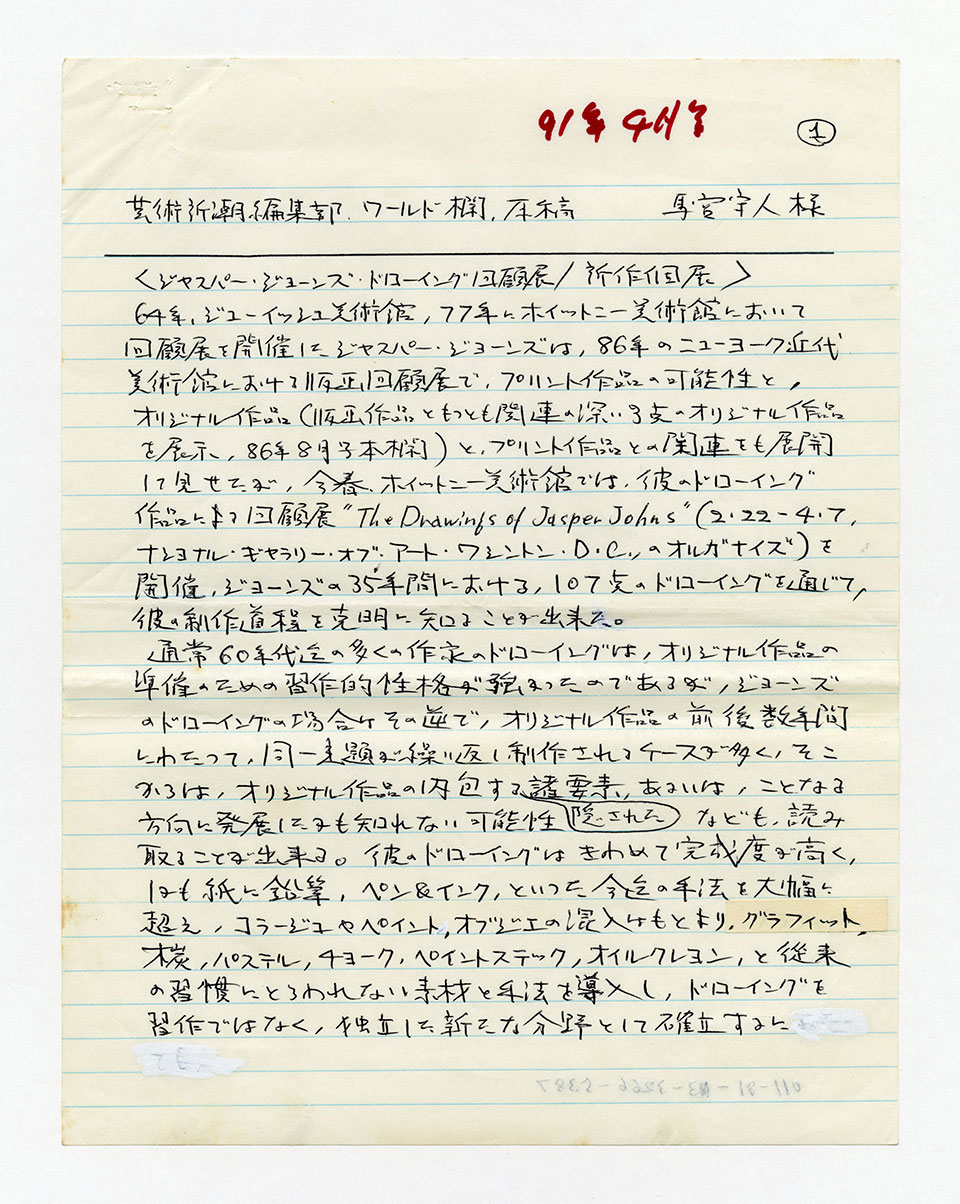 91年4月号
①
芸術新潮編集部、ワールド欄、原稿 馬宮守人様
〈ジャスパー・ジョーンズ・ドローイング回顧展/新作個展〉
64年、ジューイッシュ美術館,77年にホイットニー美術館において
回顧展を開催したジャスパー・ジョーンズは,86年のニューヨーク近代
美術館における版画回顧展で,プリント作品の可能性と,
オリジナル作品(版画作品ともっとも関連の深い3点のオリジナル作品
を展示,86年8月号本欄)と,プリント作品との関連をも展開
して見せたが,今春,ホイットニー美術館では,彼のドローイング
作品による回顧展"The Drawings of Jasper Johns"(2.22-4.7,
ナショナル・ギャラリー・オブ・アート・ワシントン・D.C.,のオルガナイズ)を
開催,ジョーンズの35年間における,107点のドローイングを通じて,
彼の制作道程を克明に知ることが出来た。
通常60年代迄の多くの作家のドローイングは,オリジナル作品の
準備のための習作的性格が強かったのであるが,ジョーンズ
のドローイングの場合はその逆で,オリジナル作品の前後数年間
にわたって,同一主題が繰り返し制作されるケースが多く,そこ
からは,オリジナル作品の内包する諸要素,あるいは,ことなる
方向に発展したかも知れない可能性 隠された なども,読み
取ることが出来る。彼のドローイングはきわめて完成度が高く,
しかも紙に鉛筆,ペン&インク,といった今迄の手法を大幅に
超え,コラージュやペイント,オブジェの混入はもとより,グラフィット,
木炭,パステル,チョーク,ペイントスティック,オイルクレヨン,と従来
の習慣にとらわれない素材と手法を導入し,ドローイングを
習作ではなく,独立した新たな分野として確立するに
011-81-03-3266-5387